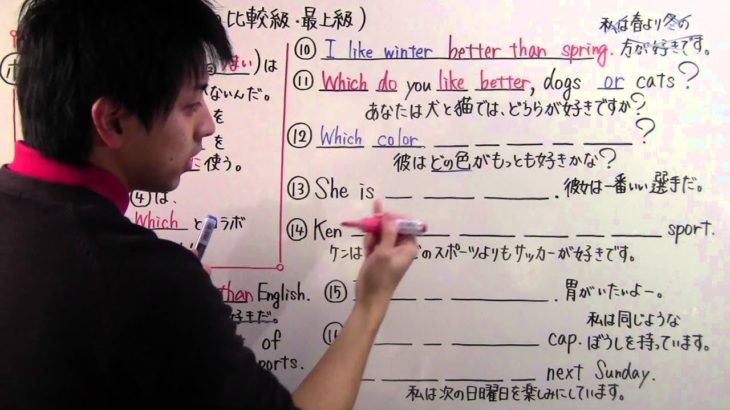 比較級・最上級)
い)は
ないんだ。
を
を
使う。
(4)は、
Which と
ラボ
than English.
好きだ。
of
ports.
私は春より冬の
方が好きです。
⑩ I like winter better than spring.
⑪ Which do you like better, dogs or cats?
あなたは犬と猫では、どちらが好きですか?
⑫ Which color ?
彼はどの色がもっとも好きかな?
⑬ She is .
彼女は一番いい選手だ。
⑭ Ken sport.
ケンは
のスポーツよりもサッカーが好きです。
⑮ .
胃がいたいよー。
私は同じような
cap.
ぼうしを持っています。
next Sunday.
私は次の日曜日を楽しみにしています。